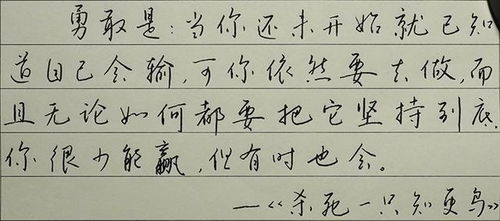 勇敢是:当你还未开始就已知
道自己会输,可你依然要去做,而
且无论如何都要把它坚持到底.
你很少能赢,但有时也会。
—《杀死一只知更鸟》